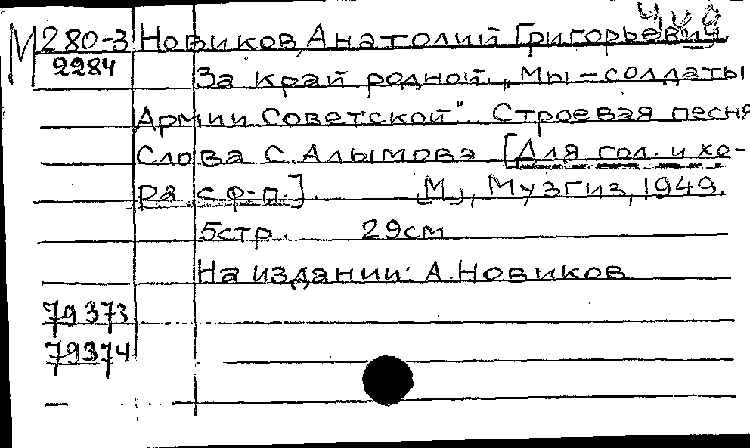 М 280-3 Новиков, Анатолий Григорьевич
2284 За край родной. „Мы – солдаты
Армии Советской". Строевая песня
Слова С. Алымова [Для гол. и хо-
ра с ф-п.]. [М.], Музгиз, 1949.
5 стр. 29 см
На издании: А. Новиков
79373
79374